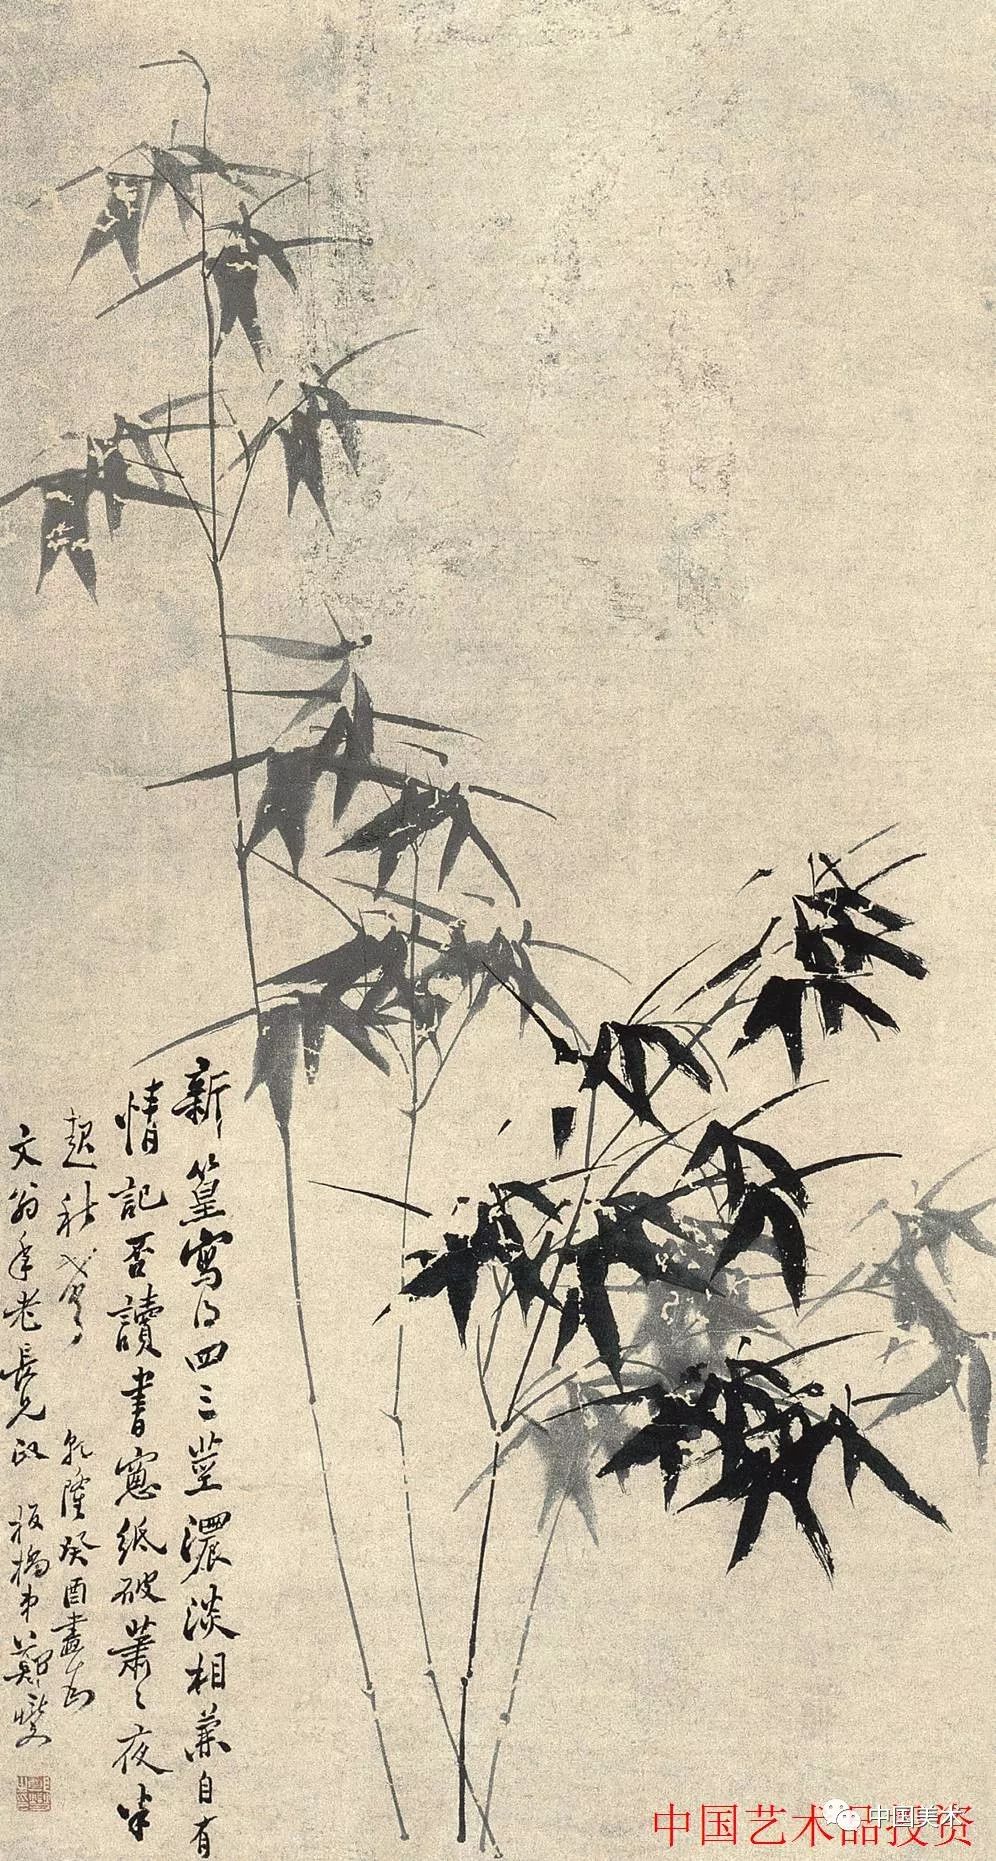 新篁寫得四三莖濃淡相兼自有
情記否讀書窓紙破蕭〻夜半
起秋聲 乾隆癸酉畫為
文翁年老長兄政 板橋弟鄭燮
中国艺术品投资
中国美术